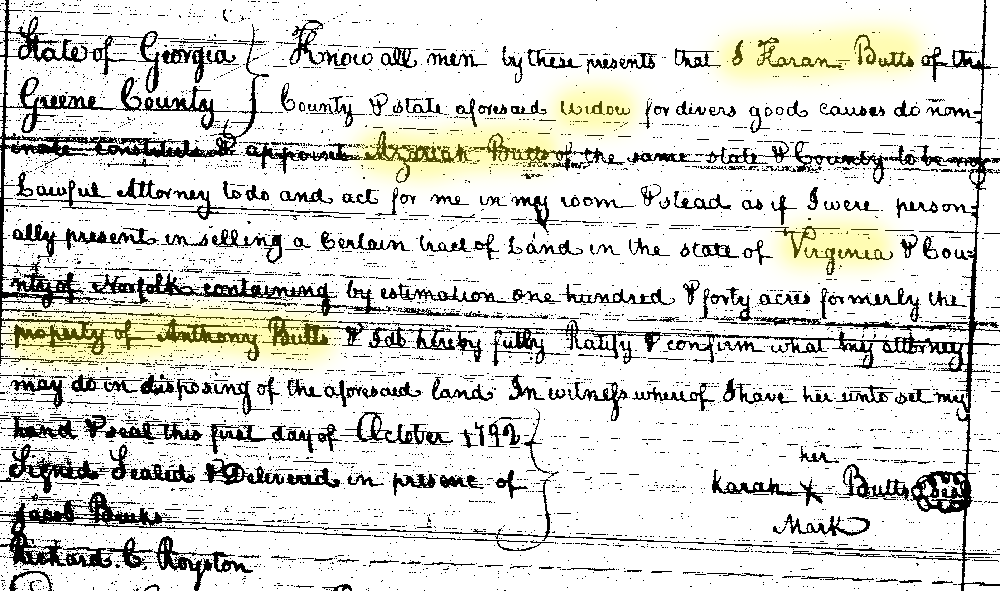 State of Georgia } Know all men by these presents that I Karan Butts of the
Greene County } County & state aforesaid widow for divers good causes do nom-
inate constitute & appoint Azariah Butts of the same state & County to be my
Lawful Attorney to do and act for me in my room & stead as if I were person-
ally present in selling a Certain tract of Land in the state of Virginia & Cou-
nty of Norfolk containing by estimation one hundred & forty acres formerly the
property of Anthony Butts & I do hereby fully Ratify & confirm what my attorney
may do in disposing of the aforesaid land In witness whereof I have here unto set my
hand & seal this first day of October 1792
Signed Sealed & Delivered in presence of
her
Karan X Butts seal
Mark
Jacob
Richard C. Royston